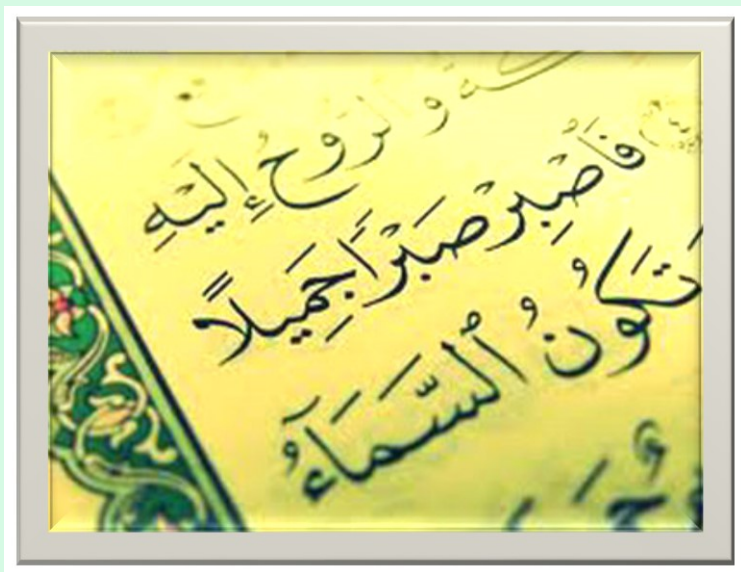 وَالرُّوحُ إِلَيْهِ
فَاصْبِرْ صَبْرًا جَمِيلًا
تَكُونُ السَّمَاءُ